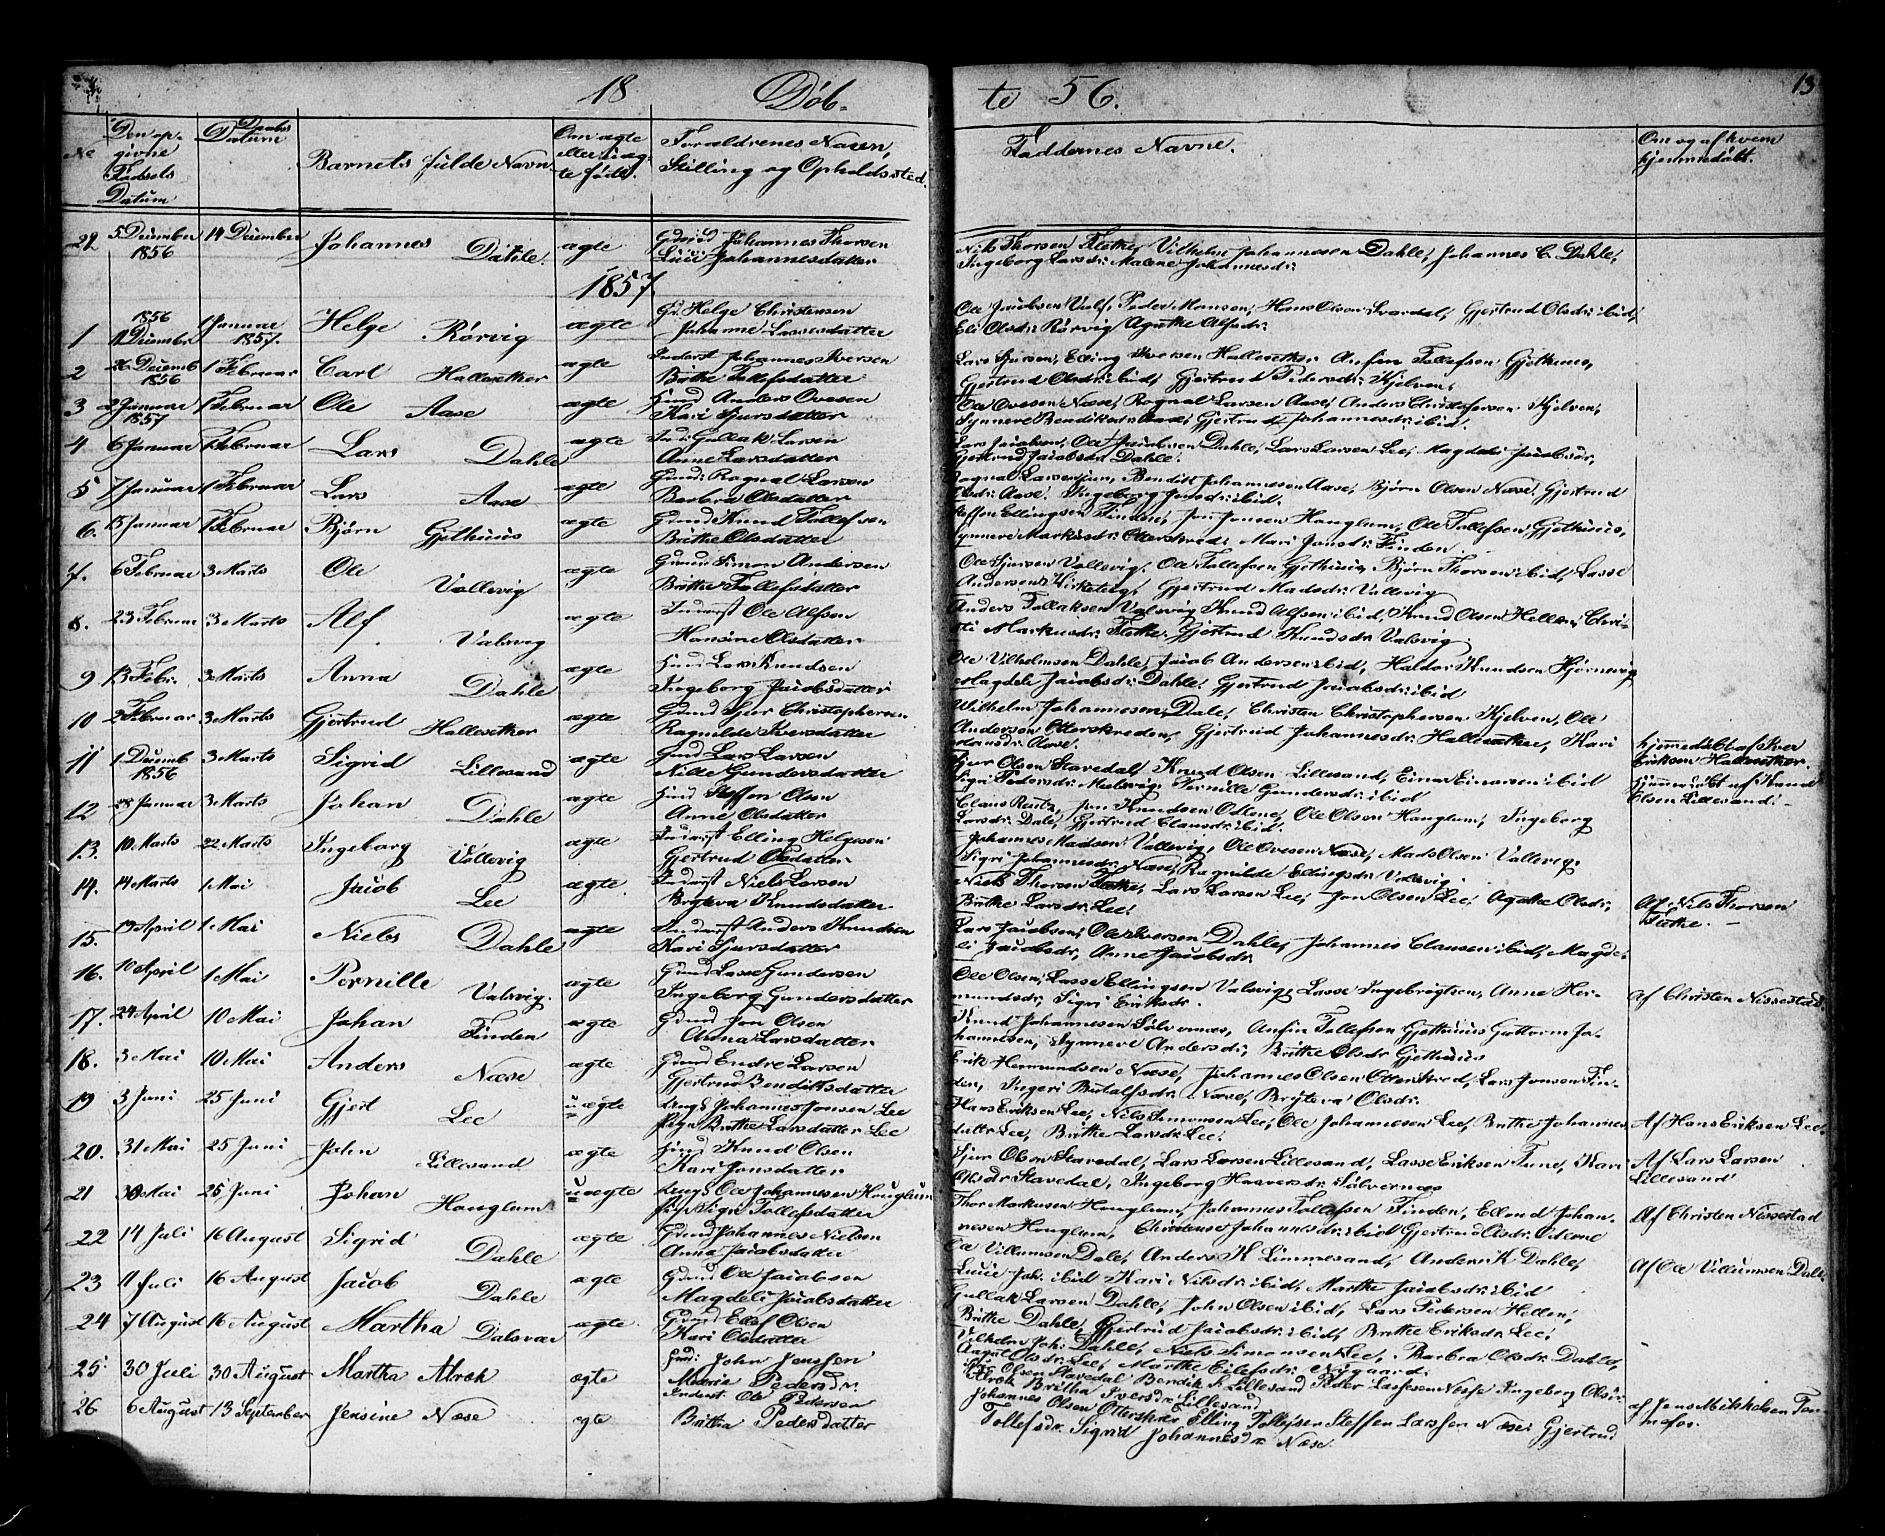 18 Döb- te 56. 13
No
Den op-
givne
Fødsels
Datum
Daabs
Datum
Barnets fulde Navn
Om ægte
eller uæg-
te født.
Forældrenes Navn,
Stilling og Opholdssted.
Faddernes Navne.
Om og af hvem
hjemmedøbt.
5 December 1856 14 December Johannes Dahle. ægte Johannes Thorsen
Johannesdatter
Nils Thorsen Flethe, Vilhelm Johannesen Dahle, Johannes C. Dahle,
Ingeborg Larsdr: Malene Johannesdr:
1857.
1 1856 11 December 1 Januar 1857. Helge Rørvig ægte Gd. Helge Christensen
Johanne Lassesdatter
Ole Jacobsen Peder Monsen, Hans Olsen Gjertrud Olsdr: ibid,
Eli Olsdr: Rørvig Agathe Alfsdr:
2 26 Decemb 1856 1 Februar Carl Hallesether ægte Inderst Johannes Iversen
Brithe Tollefsdatter
Lars Elling Iversen Hallesether Anfin Tollefsen Gjethuus,
Gjertrud Olsdr: ibid, Gjertrud Pedersdr: Kjelven.
3 2 Januar 1857 1 Februar Ole Aase ægte Anders Ovesen
Kari Sjursdatter
Ole Ovesen Næse, Ragnal Larsen Aase, Anders Christofersen Kjelven,
Synneve Bendiksdr: Aase, Gjertrud Johannesdr: ibid.
4 6 Januar 1 Februar Lars Dahle ægte Gullak Larsen
Anne Larsdatter
Lars Jacobsen, Ole Jacobsen Dahle, Lars Larsen Lee, Magdeli Jacobsdr,
Gjertrud Jacobsdr Dahle.
5 7 Januar 1 Februar Lars Aase ægte Ragnal Larsen
Barbra Olsdatter
Ragnal Larsen Bendikt Johannesen Aase, Bjørn Olsen Næse, Gjertrud
Aase. Ingeborg Jonsdr: ibid.
6. 15 Januar 1 Februar Bjørn Gjethuus ægte Gmd Knud Tollefsen
Brithe Olsdatter
Steffen Ellingsen Finden, Jon Jonsen Hauglum, Ole Tollefsen Gjethuus,
Synneve Markusdr: Otterskred, Mari Jonsdr: Finden
7. 6 Februar 3 Marts Ole Vallevig ægte Simon Andersen
Brithe Tollefsdatter
Ole Sjursen Vallevig, Ole Tollefsen Gjethuus, Bjørn Thorsen ibid, Lasse
Andersen Gjertrud Madsdr: Vallevig
8. 23 Februar 3 Marts Alf Valsvig ægte Inderst Ole Alfsen
Hansine Olsdatter
Anders Tollaksen Valsvig Knud Alfsen ibid, Knud Olsen Hellen, Chri-
sti Markusdr: Flethe, Gjertrud Knudsdr: Valsvig
9 13 Febr. 3 Marts Anna Dahle ægte Lars Knudsen
Ingeborg Jacobsdatter
Ole Vilhelmsen Dahle, Jacob Andersen ibid, Haldor Knudsen
Magdeli Jacobsdr: Dahle. Gjertrud Jacobsdr: ibid
10 2 Februar 3 Marts Gjertrud Hallesether ægte Gmd Sjur Christophersen
Ragnilde Iversdatter
Wilhelm Johannesen Dale, Christen Christophersen Kjelven, Ole
Andersen Otterskreden, Gjertrud Johannesdr: Hallesether, Kari
Aase.
hjemmedøbt af Iver
Eriksen Hallesether.
11 1 Decemb 1856 3 Marts Sigrid Lillesand ægte Gmd Lars Larsen
Nille Gundersdatter
Sjur Olsen Stavedal, Knud Olsen Lillesand, Einar Einarsen ibid
Sigri Pedersdr: Pernille Gundersdr: ibid
hjemmedøbt af Knud
Olsen Lillesand.-
12 28 Januar 3 Marts Johan Dahle ægte Steffen Olsen
Anne Olsdatter
Claus Rentz, Jon Knudsen Ole Olsen Hauglum, Ingeborg
Larsdr: Dale, Gjertrud Clausdr: ibid.
13. 10 Marts 22 Marts Ingeborg Vallevig ægte Inderst Elling Helgesen
Gjertrud Olsdatter
Johannes Madsen Vallevig, Ole Ovesen Næse, Mads Olsen Vallevig,
Sigri Johannesdr: Næse, Ragnilde Ellingsdr: Vallevig.
14. 14 Marts 1 Mai Jacob Lee ægte Inderst Niels Larsen
Bryteva Knudsdatter
Niels Thorsen Flethe, Lars Larsen Lee, Jon Olsen Lee, Agathe Olsdr:,
Brithe Larsdr: Lee.
Af Nils Thorsen
Flethe.-
15. 19 April 1 Mai Niels Dahle ægte Inderst Anders Knudsen
Kari Sjursdatter
Lars Jacobsen, Ole Iversen Dahle, Johannes Clausen ibid, Magde-
li Jacobsdr:, Anne Jacobsdr:
16. 10 April 1 Mai Pernille Valsvig. ægte Gmd Lasse Gundersen
Ingeborg Gundersdatter
Ole Olsen, Lasse Ellingsen Valsvig, Lasse Ingebrigtsen, Anne Her-
mundsdr:, Sigri Eriksdr.
af Christen Nissestad.
17. 24 April 10 Mai Johan Finden ægte Gmd Jon Olsen
Anna Larsdatter
Knud Johannesen Sølvernæs, Anfin Tollefsen Gjethuus Guttorm Jo-
hannesen, Synneve Andersdr:, Brithe Olsdr Gjethuus
18. 3 Mai 10 Mai Anders Næse ægte Gmd Endre Larsen
Gjertrud Bendiktsdatter
Erik Hermundsen Næse, Johannes Olsen Otterskred, Lars Jonsen Fin-
den, Ingeri Næse, Bryteva Olsdr:
19 3 Juni 25 Juni Gjert Lee uægte Johannes Jonsen Lee
Pige Brithe Larsdatter Lee
Hans Eriksen Lee, Nils Simonsen Lee, Ole Johannesen Lee, Brithe Johannes
datter Lee, Brithe Larsdr: Lee.
Af Hans Eriksen Lee.
20. 31 Mai 25 Juni John Lillesand ægte Knud Olsen
Kari Jonsdatter
Sjur Olsen Stavedal, Lars Larsen Lillesand, Lasse Eriksen Tune, Kari
Olsdr Stavedal, Ingeborg Haaversdr. Sølvernæs
Af Lars Larsen
Lillesand
21 30 Mai 25 Juni Johan Hauglum uægte Ole Johannesen Hauglum
Sigri Tollefsdatter
Thor Markusen Hauglum, Johannes Tollefsen Finden, Ellend Johan-
nesen Hauglum, Christense Johannesdr: ibid Gjertrud Olsdr:
Af Christen Nissestad
22 14 Juli 16 August Sigrid Dahle ægte Gmd Johannes Nielsen
Anna Jacobsdatter
Ole Villumsen Dale, Anders K Linnesand, Anders K Dahle,
Lucie Joh: ibid Kari Nilsdr: ibid, Marthe Jacobsdr: ibid
Af Ole Villumsen Dale
23 11 Juli 16 August Jacob Dahle ægte Gmd Ole Jacobsen
Magdeli Jacobsdatter
Gullak Larsen Dahle, John Olsen ibid, Lars Pedersen Hellen,
Brithe Dahle, Gjertrud Jacobsdr: ibid, Brithe Eriksdr: Lee.
24 7 August 16 August Martha Dalsvar ægte Gmd Ellef Olsen
Kari Olsdatter
Vilhelm Joh: Dahle, Niels Simonsen Lee, Barbra Olsdr: Dahle,
Olsdr: Lee, Marthe Eilefsdr: Nygaard.
25. 30 Juli 30 August Martha Alrek ægte John Jenssen
Marie Pedersdr.
Olsen Stavedal Bendik S. Lillesand Peder Lassesen Nesse Ingeborg
Alrek Britha Iversdr. Lillesand
26 6 August 13 September Jensine Næse ægte Inderst Ole Pedersen
Britha Pedersdatter
Johannes Olsen Otterskred Elling Tollefsen Steffen Larssen Næse Gjertrud
Tollefsdr. Sigrid Johannesdr. Næse.
af Jens Mikkelsen